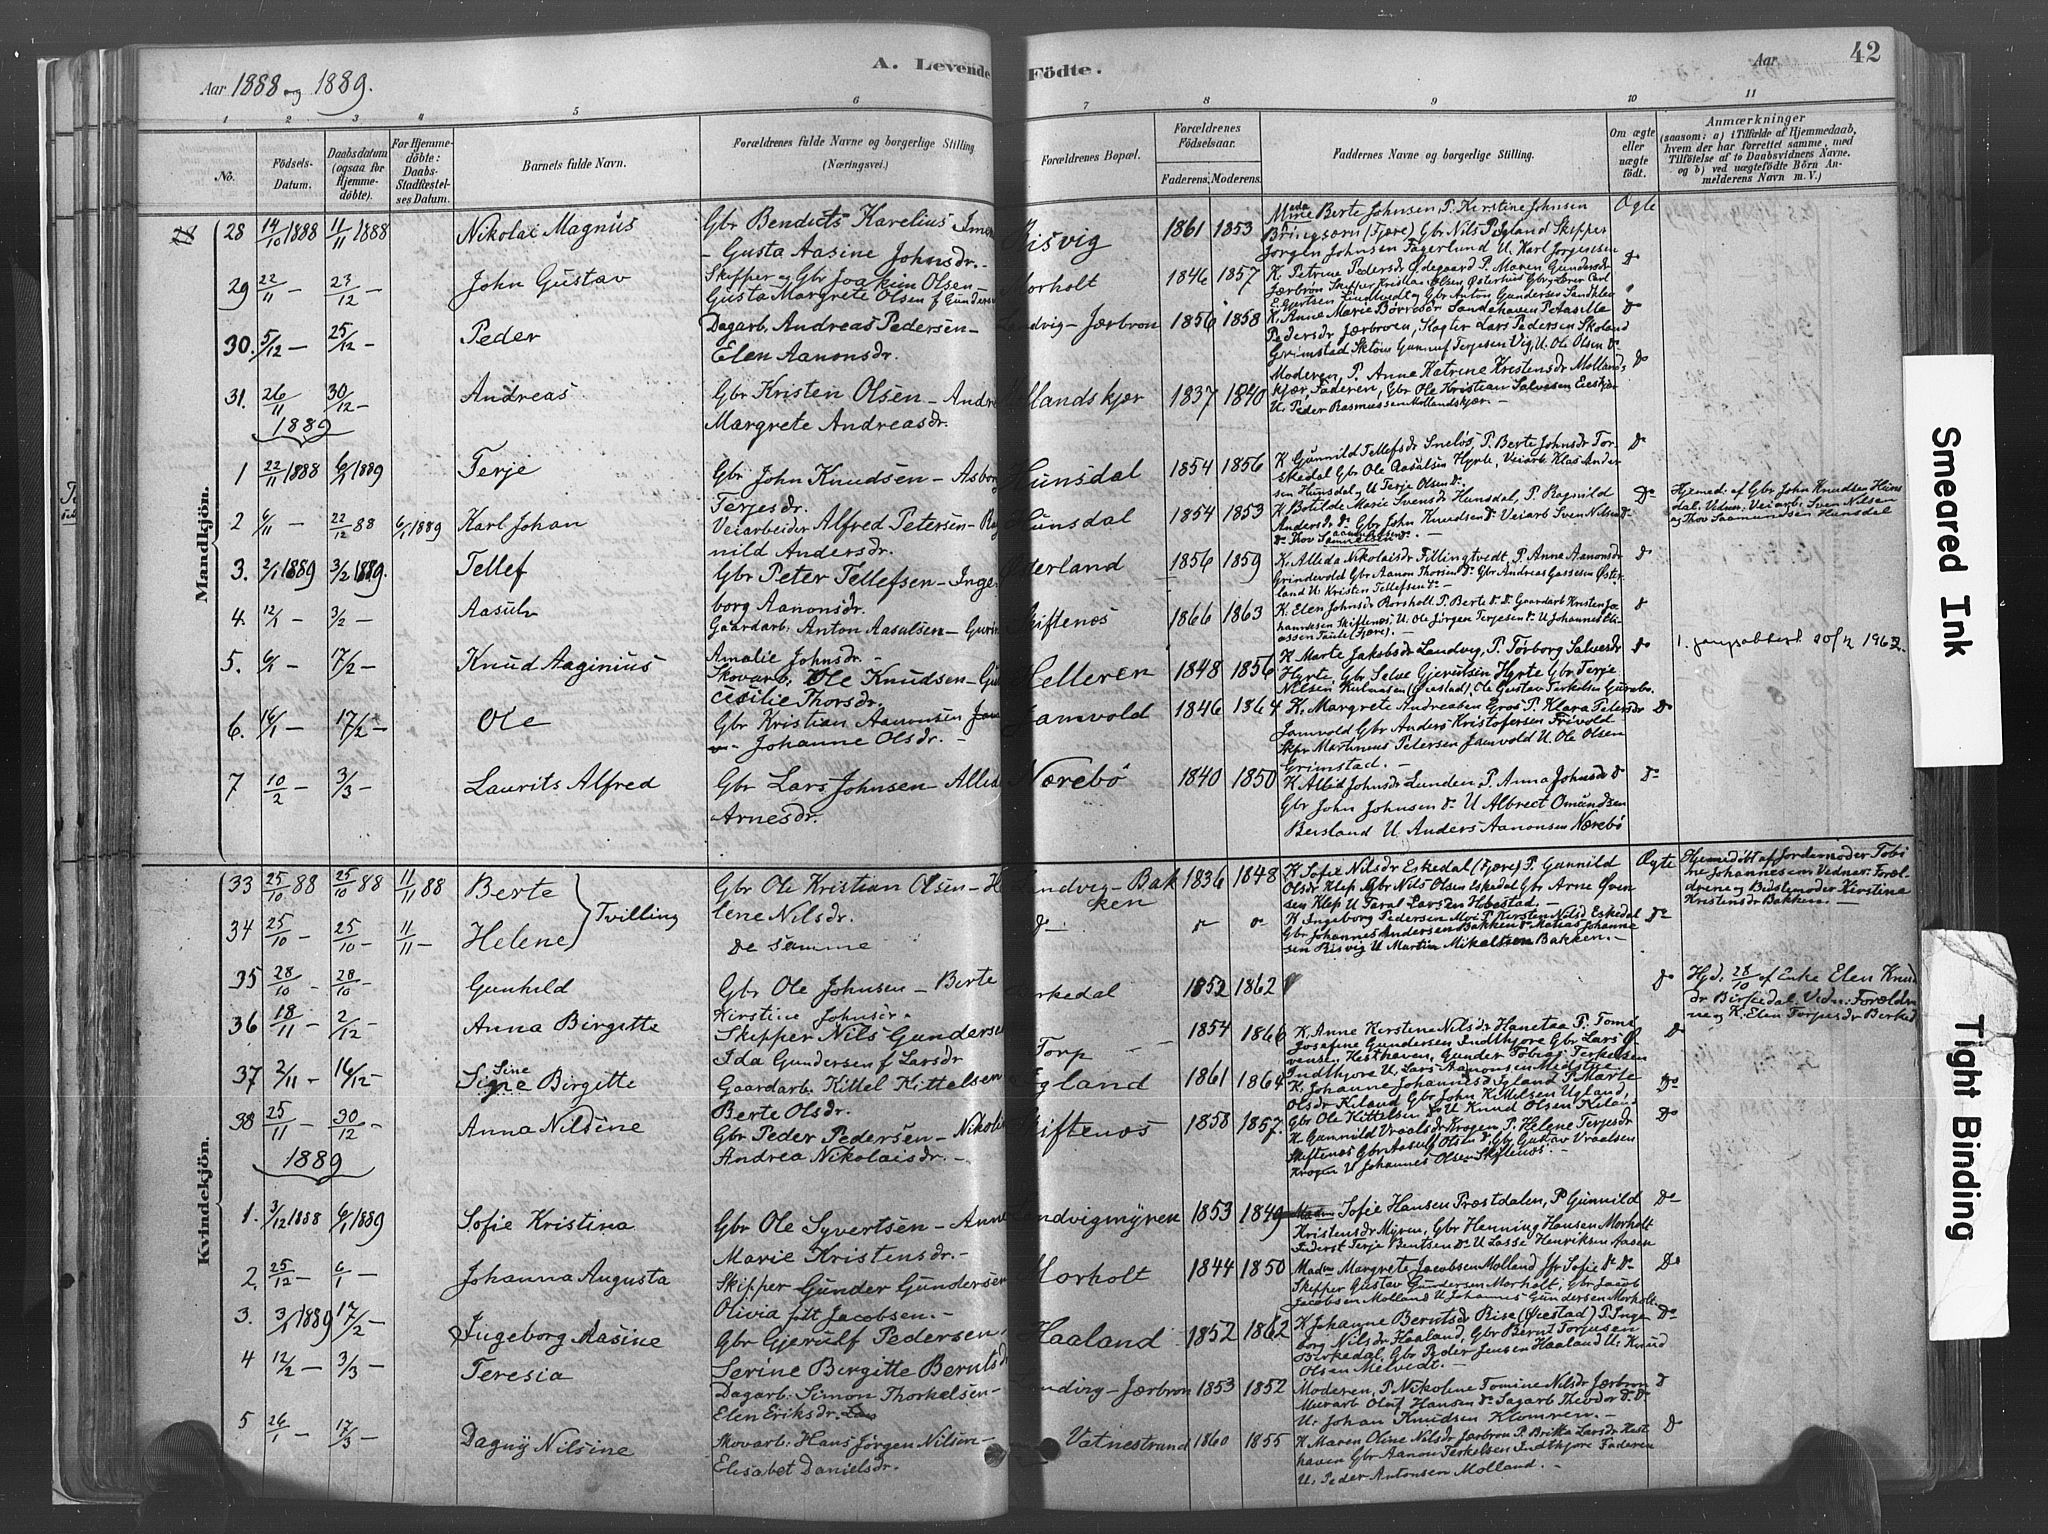 Aar 1888 og 1889.
A. Levende Födte.
Aar
42
1 2 3 4 5 6 7 8 9 10 11
No.
Födsels-Datum.
Daabsdatum (ogsaa for Hjemmedöbte).
For Hjemmedöbte: Daabs-Stadfæstelses Datum.
Barnets fulde Navn.
Forældrenes fulde Navne og borgerlige Stilling (Næringsvei.)
Forældrenes Bopæl.
Forældrenes Födselsaar.
Faderens. Moderens.
Faddernes Navne og borgerlige Stilling.
Om ægte eller uægte födt.
Anmærkninger
(saasom: a) i Tilfælde af Hjemmedaab, hvem der har forrettet samme, med Tilföielse af to Daabsvidners Navne. og b) ved uægtefödte Börn Anmelderens Navn m. V.)
Mandkjön.
28 14/10 1888 11/11 1888 Nikolai Magnus Gbr Bendets Karelius
- Gusta Aasine Johnsdr. - Risvig 1861 1853 Berte Johnsen, P. Kirstine Johnsen
(Fjære) Gbr Nils P. Egland Skipper
Jorgen Johnsen Fagerlund U. Karl Jorgensen Ægte
29 22/11 - 23/12 - John Gustav Skipper og Gbr Joakim Olsen -
Gusta Margrete Olsen f Gunders Morholt 1846 1857 K. Petrine Pedersdr Ødegaard P. Maren Gundersdr
Jærbrøn Skipper Kristian Olsen Østerhus
Gbr Anton Gundersen Do
30. 5/12 - 25/12 - Peder Dagarb. Andreas Pedersen -
Elen Aanonsdr. Landvig - Jærbron 1856 1858 K. Anne Marie
Pedersdr Jærbroen, Lars Pedersen Skoland
Grimstad U. Ole Olsen Do
31. 26/11 30/12 - Andreas Gbr Kristen Olsen - Andre
Margrete Andreasdr. Mollandskjær 1837 1840 Moderen, P. Anne Katrine Kristensdr Molland
kjær, Faderen, Gbr Ole Kristian Salvesen
U. Peder Rasmussen Mollandskjær. - Do
1889
1 22/11 1888 6/1 1889 Terje Gbr John Knudsen - Asborg
Terjesdr. Hunsdal 1854 1856 K Gunnild Tellefsdr P. Berte Johnsdr Tor
Eskedal Gbr Ole Aasulsen Hyrte, Veiarb. Klas Ander
sen Hunsdal, U Terje Olsen Do Do
2 6/11 22/12 88 6/1 1889 Karl Johan Veiarbeider Alfred Petersen - Rag
nild Andersdr. Hunsdal 1854 1853 K Botilde Marie Svensdr Hunsdal, P. Ragnild
Andersdr Do Gbr John Knudsen Do Veiarb Sven Nilsen Do
Do Thov Do Hjemmed. af Gbr John Knudsen Huns
dal. Vidner: Veiarb. Sven Nilsen
og Thov Hunsdal
3. 2/1 1889 3/2 1889. Tellef Gbr Peter Tellefsen - Inge
borg Aanonsdr. Østerland 1856 1859 K. Allida Nikolaisdr Fillingtvedt, P. Anne Aanonsdr
Grindevold Gbr Aanon Thorsen Do Gbr Andreas Gassesen Øster
land U. Kristen Tellefsen Do Do
4. 12/1 - 3/2 - Aasulv Gaardarb. Anton Aasulsen - Gurin
Amalie Johnsdr. - Skiftenes 1866 1863 K. Elen Johnsdr Rorsholt P. Berte Do Do Gaardarb Kristen Jo
hannesen Skiftenes, U. Ole Jörgen Terjesen Do U Johannes
(Fjære). Do
5. 6/1 - 17/2 - Knud Aaginius Skovarb. Ole Knudsen - Gu
Cesilie Thorsdr. Helleren 1848 1856 K Marte Jakobsdr Landvig, P. Torborg Salvesdr
Hyrte, Gbr Selve Gjerulsen Hyrte Gbr Terje
Nilsen (Øiestad), Ole Gustav Terkelsen Gurebo. Do 1. 20/12 1962.
6. 16/1 - 17/2 - Ole Gbr Kristian Aanonsen
Johanne Olsdr. - Jamvold 1846 1864 K. Margrete Andreasen Gros P. Klara Petersdr
Jamvold Gbr Anders Kristofersen Frivold
Skpr Martinius Petersen Jamvold U. Ole Olsen
Grimstad. - Do
7 10/2 - 3/3 - Laurits Alfred Gbr Lars Johnsen - Allid
Arnesdr. Nærebö 1840 1850 K Allid Johnsdr Lunden, P Anna Johnsdr Do
Gbr John Johnsen Do U Albrect Omundsen
Bersland U. Anders Aanonsen Nærebö Do
Kvindekjön.
33 25/10 88 25/10 88 11/11 88 Berte } Tvilling Gbr Ole Kristian Olsen - He
lene Nilsdr. Landvig - Bak
ken 1836 1848 K Sofie Nilsdr Eskedal (Fjære) P. Gunnild
Olsdr Klep Gbr Nils Olsen Eskedal Gbr Arne Øven
sen Klep U Taral Larsen Hobestad - Ægte Hjemmedöbt af Jordemoder Tobi
ne Johannesen Vidner: Foræl-
drene og Bedstemoder Kirstine
Kristensdr Bakken. -
34 25/10 - 25/10 - 11/11 - Helene De samme Do K Ingeborg Pedersen Moi P. Kirsten Nilsd Eskedal
Gbr Johannes Andersen Bakken Do Matias Johanne
sen Risvig U Martin Mikalsen Bakken. - Do
35 28/10 - 28/10 - Gunhild Gbr Ole Johnsen - Berte
Kirstine Johnsdr. Birkedal 1852 1862 Do Hjd. 28/10 af Enke Elen Knud
dr Birkedal. Vidn: Foræld
ne og K. Elen Torjusdr Birked
36 18/11 - 2/12 - Anna Birgitte Skipper Nils Gunderse
Ida Gundersen f Larsdr Torp - - 1854 1866 K. Anne Kirstine Nilsdr Hanetaa P. Tomi
Josefine Gundersen Indthjore Gbr Lars Ø
vense. Hesthaven, Gunder Tobias Terkelsen
Indthjore U. Lars Aanonsen Do
37 2/11 - 16/12 - Signe Sine Birgitte Gaardarb. Kittel Kittelsen
Berte Olsdr. Egland 1861 1864 K. Johanne Johannesd Igland P. Marte
Olsdr Kiland Gbr John Kittelsen Ugland,
Gbr Ole Kittelsen Do U Knud Olsen Kiland Do
38 25/11 - 30/12 - Anna Nilsine Gbr Peder Pedersen - Nikoli
Andrea Nikolaisdr. - Skiftenes 1858 1857. K Gunnild Vraalsdr Krogen P. Helene Terjesdr
Skiftenes Gbr Aasulf Olsen Do Gbr Gustav Vraalsen
Krogen U Johannes Olsen Skiftenes. - Do
1889
1. 3/12 1888 6/1 1889 Sofie Kristina Gbr Ole Syvertsen - Anne
Marie Kristensdr. - Landvigmyren 1853 1849 Sofie Hansen Præstdalen, P Gunnild
Kristensdr Myren, Gbr Henning Hansen Morholt
Inderst Terje Bentsen Do U Lasse Henriksen Aasen Do
2. 25/12 - 6/1 - Johanna Augusta Skipper Gunder Gundersen
Olivia født Jacobsen. - Morholt 1844 1850 Madm Margrete Jacobsen Molland jfr Sofie Do Do
Skipper Gustav Gundersen Morholt, Gbr Jacob
Jacobsen Molland U Johannes Gundersen Morholt Do
3. 3/1 1889 17/2 - Ingeborg Aasine Gbr Gjerulf Pedersen
Serine Birgitte Berntsd Haaland 1852 1862 K Johanne Berntsd Rise (Øiestad) P. Inge
borg Nilsdr Haaland, Gbr Bernt Torjusen
Birkedal, Gbr Peder Jensen Haaland U. Knud
Olsen Melvedt. - Do
4 12/2 - 3/3 - Teresia Dagarb. Simon Thorkelsen -
Elen Eriksdr. Landvig - Jærbron 1853 1852 Moderen, P Nikoline Tomine Nilsdr Jærbron
Murarb Olaf Hansen Do Sagarb Theodor Do Do
U. Johan Knudsen Klomren. - Do
5 26/1 - 17/3 - Dagny Nilsine Skovarb. Hans Jörgen Nilsen -
Elisabet Danielsdr. Vatnestrand 1860 1855 K Maren Oline Nilsdr Jærbron P Britta Larsdr Hest
haven Gbr Aanon Terkelsen Indthjore Faderen
U. Peder Antonsen Molland. - Do
Smeared Ink
Tight Binding